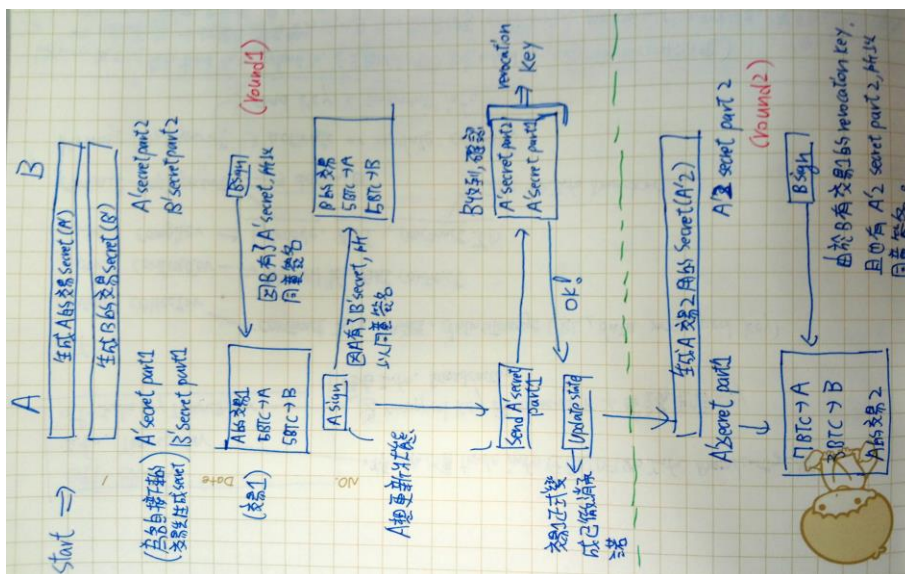 Start ⇒
A
B
生成A的交易secret(A')
生成B的交易secret(B')
(為各自接下來的
交易先生成secret)
A'secret part1
B'secret part1
A'secret part2
B'secret part2
Date
(交易1)
A的交易1
5BTC→A
5BTC→B
B sign
(round1)
因B有了A'secret,所以
同意簽名
A sign
因A有了B'secret,所
以同意簽名
B的交易
5BTC→A
5BTC→B
NO.
A想更新狀態
Send A'secret
part1
B收到,確認
A'secret part2
A'secret part1
revocation
key
OK!
Update state
交易1正式變
成已撤消承
諾
生成A交易2用的Secret(A'2)
A'secret part1
A'2 secret part 2
(round2)
7BTC→A
3BTC→B
A的交易2
B sign
由於B有交易1的revocation key,
且也有A'2 secret part 2,所以
同意簽名。